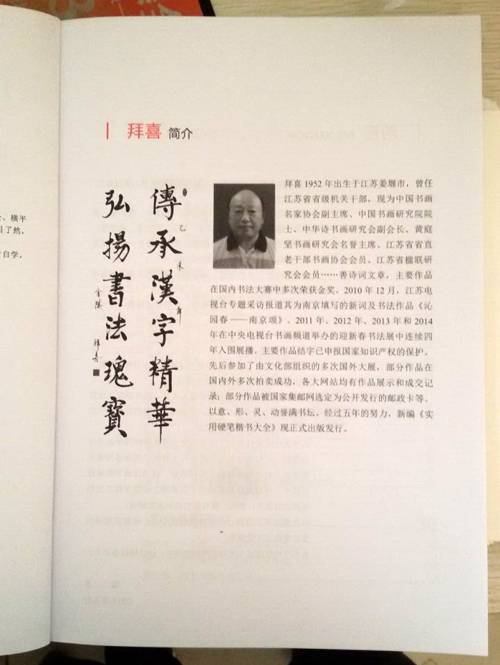 拜喜 简介
傳承漢字精華
弘揚書法瑰寶
拜喜 1952 年出生于江苏姜堰市，曾任
江苏省省级机关干部，现为中国书画
名家协会副主席、中国书画研究院院
士、中华诗书画研究会副会长、黄庭
坚书画研究会名誉主席、江苏省省直
老干部书画协会会员、江苏省楹联研
究会会员……善诗词文章，主要作品
在国内书法大赛中多次荣获金奖。2010 年 12 月，江苏电
视台专题采访报道其为南京填写的新词及书法作品《沁
园春——南京颂》。2011 年、2012 年、2013 年和 2014
年在中央电视台书画频道举办的迎新春书法展中连续四
年入围展播。主要作品结字已申报国家知识产权的保护。
先后参加了由文化部组织的多次国外大展，部分作品在
国内外多次拍卖成功，各大网站均有作品展示和成交记
录；部分作品被国家集邮网选定为公开发行的邮政卡等。
以意、形、灵、动誉满书坛。经过五年的努力，新编《实
用硬笔楷书大全》现正式出版发行。
、横平
目了然，
自学。